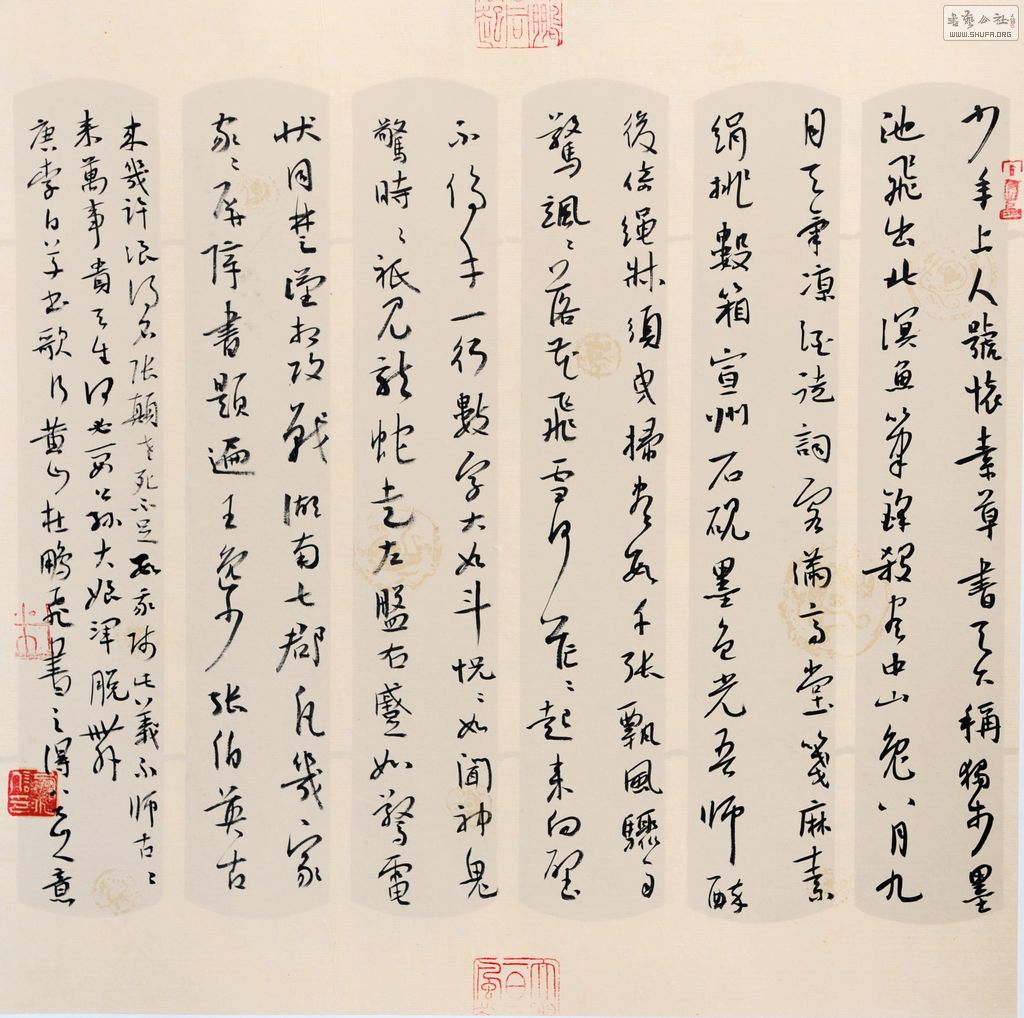 少年上人號懷素草書天下稱獨步墨
池飛出北溟魚筆鋒殺盡中山兔八月九
月天氣涼酒徒詞客滿高堂箋麻素
絹排數箱宣州石硯墨色光吾師醉
後倚繩牀須臾掃盡數千張飄風驟雨
驚颯〻落花飛雪何茫〻起來向壁
不停手一行數字大如斗怳〻如聞神鬼
驚時〻祇見龍蛇走左盤右蹙如驚電
狀同楚漢相攻戰湖南七郡凡幾家
家〻屏障書題遍王逸少張伯英古
來幾許浪得名張顛老死不足數我師此義不師古〻
來萬事貴天生何必要公孫大娘渾脫舞
唐李白草書歌行黃山杜鵬飛書之得意
書藝公社
WWW.SHUFA.ORG